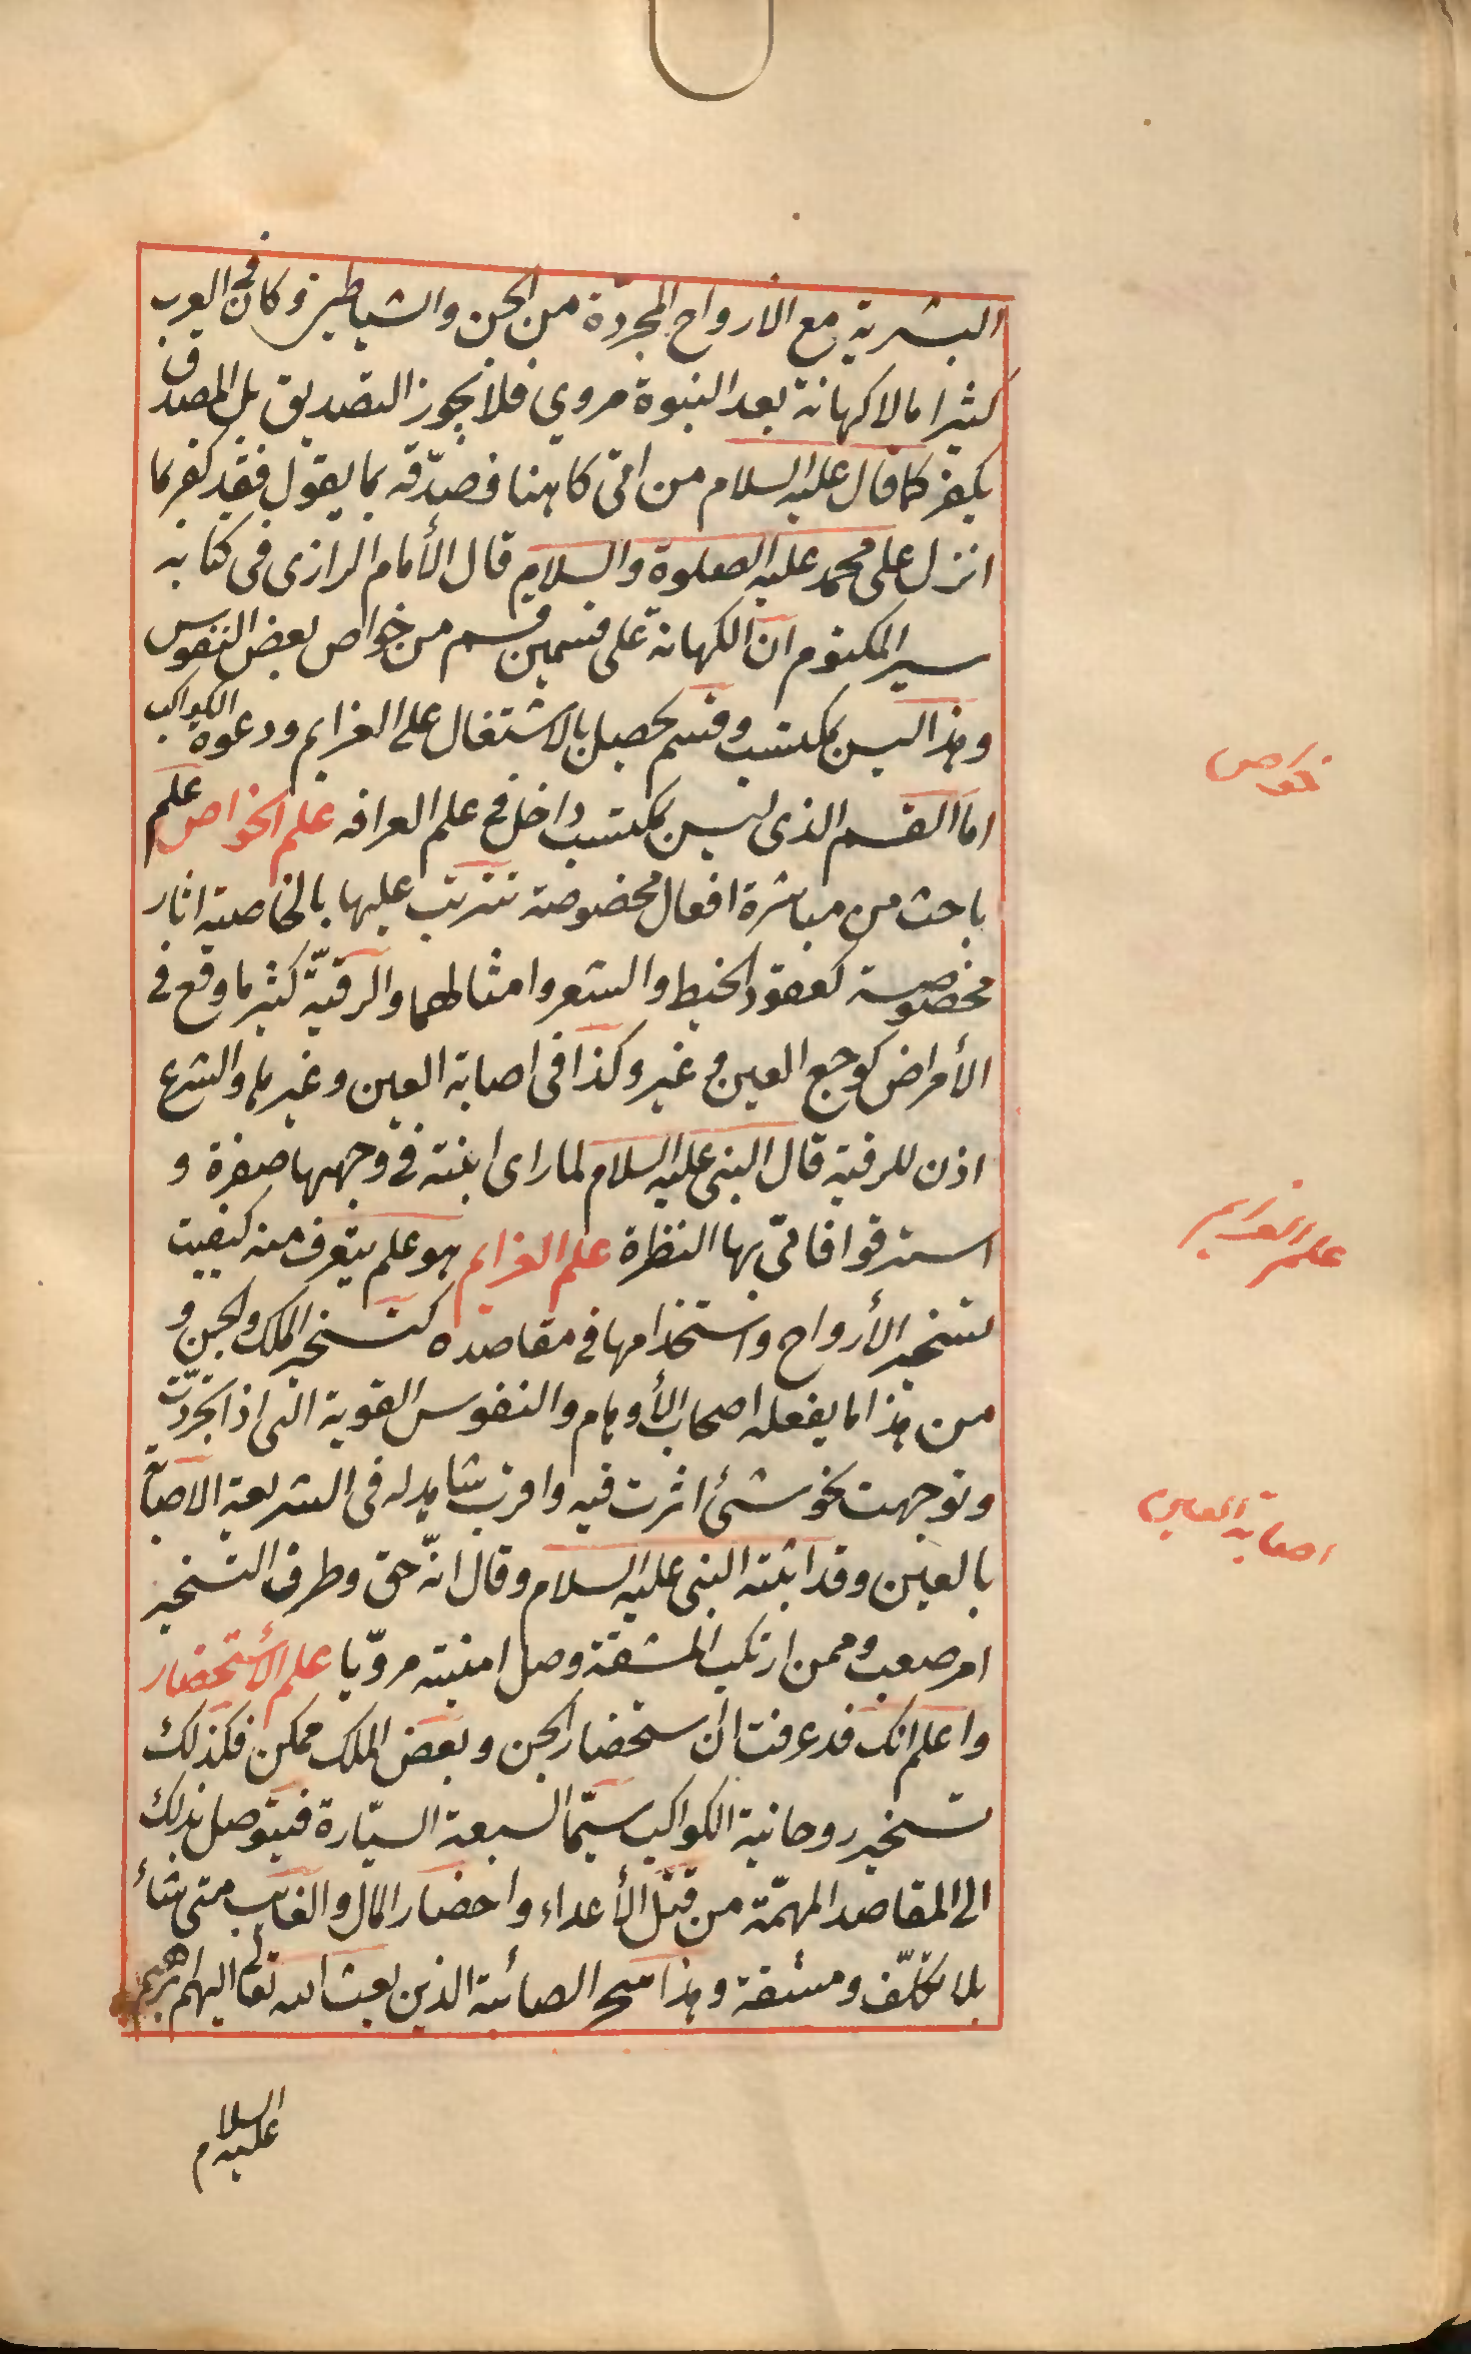 البشرية مع الارواح المجردة من الجن والشياطين وكان فى العرب
كثيرا مالا كهانة بعد النبوة مروى فلا يجوز التصديق بل المصدق
يكفر كما قال عليه السلام من اتى كاهنا فصدّقه بما يقول فقد كفر بما
انزل على محمد عليه الصلوة والسلام قال الأمام الرازى فى كتابه
سير المكتوم ان الكهانة على قسمين قسم من خواص بعض النفوس
وهذا ليس بمكتسب وقسم يحصل بالاشتغال على العزايم ودعوة الكواكب
اما القسم الذى ليس بمكتسب داخل فى علم العرافه علم الخواص علم
باحث من مباشرة افعال مخصوصة تترتب عليها بالخاصية اثار
مخصوصة كعقود الخيط والشعر وامثالهما والرقيّة كثير ما وقع فى
الأمراض كوجع العين وغير وكذا فى اصابة العين وغيرها والشرع
اذن للرقية قال النبى عليه السلام لما راى ابنته فى وجهها صفرة و
استرقوا فانّ بها النظرة علم العزايم هو علم يتعرف منه كيفيت
تسخير الأرواح واستخذامها فى مقاصده كتسخير الملك والجن و
من هذا ما يفعله اصحاب الأوهام والنفوس القوية التى اذا تجردّت
وتوجهت نحو شئ اثرت فيه واقرب شاهد له فى الشريعة الاصابة
بالعين وقد اثبته النبى عليه السلام وقال انّه حق وطرف التسخير
امر صعب وممن ارتكب المشقة وصل امنيته مروّيا علم الأستحضار
واعلم انك قد عرفت ان استحضار الجن وبعض الملك ممكن فكذلك
تسخير روحانية الكواكب سيّما السبعة السيّارة فيتوصل بذلك
الى المقاصد المهمّة من قتل الأعداء واحضار المال والغايب متى شأ
بلا تكلّف ومشقة وهذا سحر الصائبة الذين بعث الله تعالى اليهم ابرهيم
عليه السلام
خواص
علم العزايم
اصابة العين